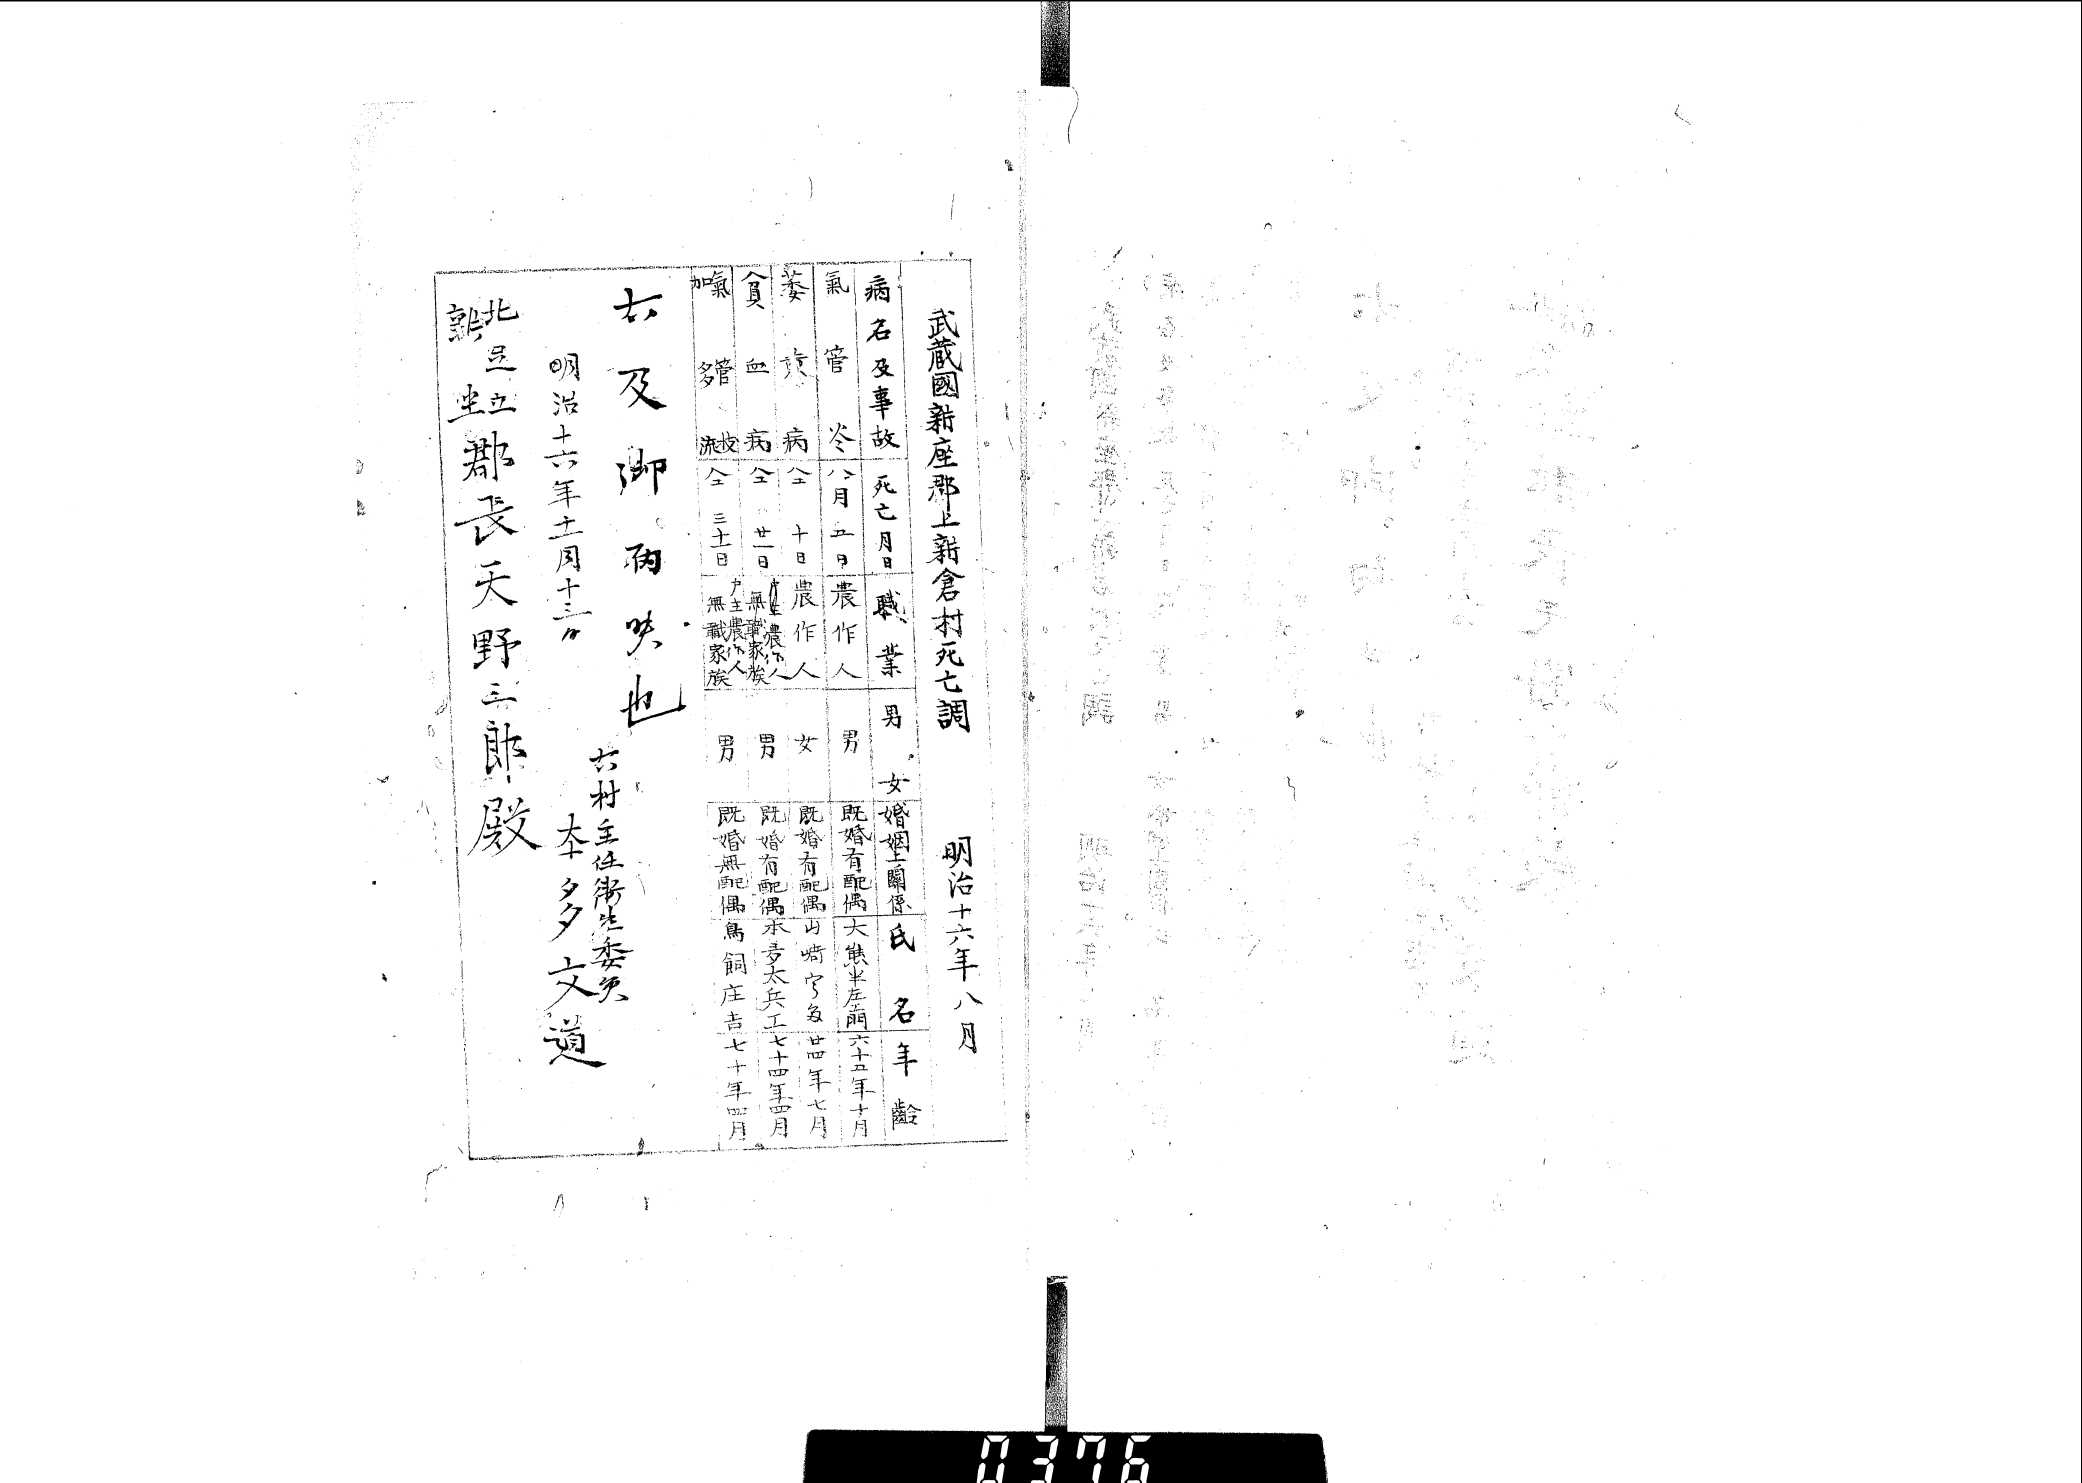 武蔵國新座郡上新倉村死亡調 明治十六年八月
病名及事故 死亡月日 職業 男女 婚姻上關係 氏名 年齢
氣管炎 八月五日 農作人 男 既婚有配偶 大熊半左衛門 六十五年十月
萎黄病 仝十日 農作人 女 既婚有配偶 山崎 廿四年七月
貧血病 仝廿一日 戸主農作人無職家族 男 既婚有配偶 本多太兵工 七十四年四月
氣管加多流 仝三十一日 戸主農作人無職家族 男 既婚無配偶 鳥飼庄吉 七十年四月
右及御届候也
右村主任衛生委員
本多文道
明治十六年十一月十三日
北足立新坐郡長天野三郎殿
0376